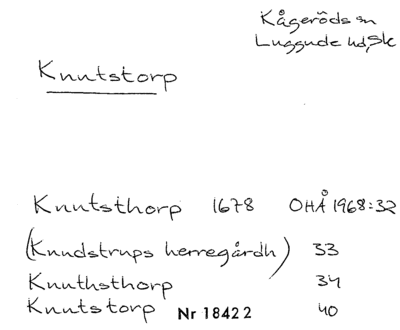 Kågeröds sn
Luggude hd, Sk
Knutstorp
Knutsthorp 1678 OHÅ 1968:32
(Knudstrups herregårdh) 33
Knuthsthorp 34
Knutstorp Nr 18422 40